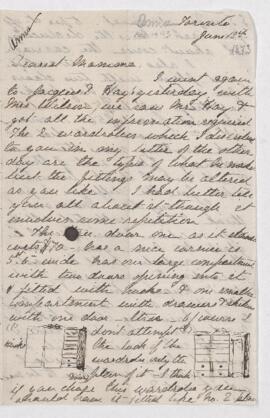 Toronto
June 12th
1873
Dearest Mamma
I went again
to Jacques & Hay's yesterday with
Mrs we saw Mr Hay &
got all the information required
The 2 wardrobes which I described
to you in my letter of the other
day are the types of what he makes
but the fittings may be altered
as you like. I had better tell
you all about it though it
involves some repetition.
The door one as it stands
costs $70 has a nice cornice is
5ft 6 wide has one large compartment
with two doors opening into it
& fitted with hooks & one smaller
compartment with drawers & shelves
with one door - thus - (of course I
don't attempt
the look of the
wardrobe only the
plan of it I think
if you chose this wardrobe you
should have it fitted like no. 2 plan